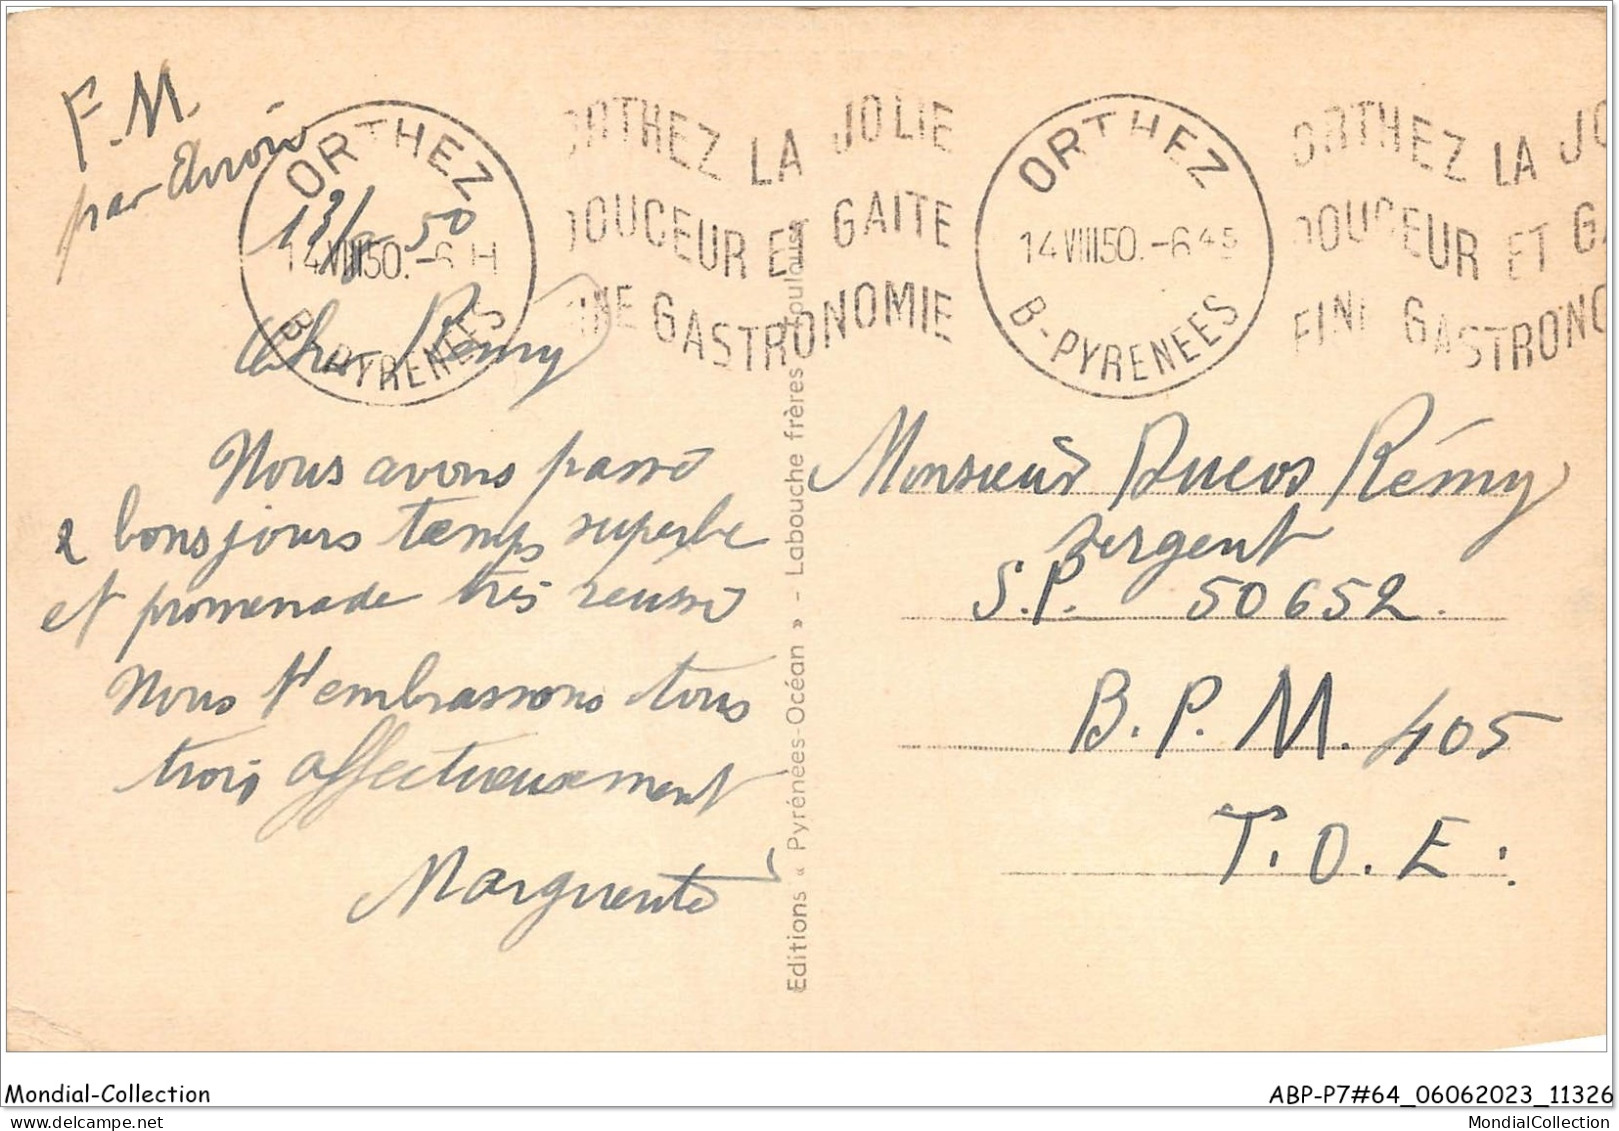 F.M.
par avion
ORTHEZ
13/8 50
14 VIII 50. -6 H
B. PYRENEES
ORTHEZ LA JOLIE
DOUCEUR ET GAITE
FINE GASTRONOMIE
ORTHEZ
14 VIII 50. -6 45
B-PYRENEES
ORTHEZ LA JO
DOUCEUR ET GA
FINE GASTRONO
Cher Rémy
Nous avons passé
2 bons jours temps superbe
et promenade très réussie
Nous t'embrassons tous
trois affectueusement
Marguerite
Editions « Pyrénées-Océan » - Labouche frères Toulouse
Monsieur Ducos Rémy
sergent
S.P. 50652.
B.P.M. 405
T.O.E.
Mondial-Collection
ABP-P7#64_06062023_11326
MondialCollection